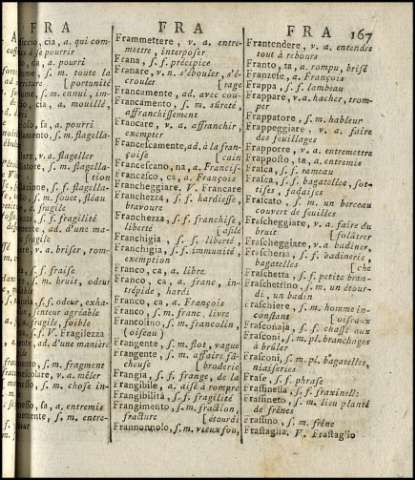 FRA
FRA
FRA
167
cia, a. qui com-
à se pourrir
ca, a. pourri
s. m. toute la
[portunité
s. m. ennui, im-
cia, a. mouillé,
a. pourri
s. m. flagella-
v. a. flageller
s. m. flagel-
[tion
s. f. flagel-
s. m. fouet, fléau
fragile
s. f. fragilité
ad. d'une ma-
fragile
v. a. briser, rom-
s. f. fraise
s. m. bruit, odeur
s. f. odeur, exha-
senteur agréable
a. fragile, foible
s. f. V. Fragilezza
ad. d'une manière
s. m. fragment
v. a. mêler
s. m. chose in-
a. entremis
s. m. entre-
Frammettere, v. a. entre-
mettre, interposer
Frana, s. f. précipice
Franare, v. n. s'ébouler, s'é-
crouler [rage
Francamente, ad. avec cou-
Francamento, s. m. sûreté,
affranchissement
Francare, v. a. affranchir,
exempter
Francescamente, ad. à la fran-
çoise [cain
Francescano, na, a. Francis-
Francesco, ca, a. François
Francheggiare. V. Francare
Franchezza, s. f. hardiesse,
bravoure
Franchezza, s. f. franchise,
liberté [asile
Franchigia, s. f. liberté,
Franchigia, s. f. immunité,
exemption
Franco, ca, a. libre
Franco, ca, a. franc, in-
trépide, hardi
Franco, ca, a. François
Franco, s. m. franc, livre
Francolino, s. m. francolin,
(oiseau)
Frangente, s. m. flot, vague
Frangente, s. m. affaire fâ-
cheuse [broderie
Frangia, s. f. frange, de la
Frangibile, a. aisé à rompre
Frangibilità, s. f. fragilité
Frangimento, s. m. fraction,
fracture [étourdi
Frannonnolo, s. m. vieux fou,
Frantendere, v. a. entendre
tout à rebours
Franto, ta, a. rompu, brisé
Franzese, a. François
Frappa, s. f. lambeau
Frappare, v. a. hacher, trom-
per
Frappatore, s. m. hableur
Frappeggiare, v. a. faire
des feuillages
Frapporre, v. a. entremettre
Frapposto, ta, a. entremis
Frasca, s. f. rameau
Frasca, s. f. bagatelles, sot-
tises, fadaises
Frascato, s. m. un berceau
couvert de feuilles
Frascheggiare, v. a. faire du
bruit [folâtrer
Frascheggiare, v. a. badiner,
Frascheria, s. f. badinerie,
bagatelles [che
Fraschetta, s. f. petite bran-
Fraschettino, s. m. un étour-
di, un badin
Fraschiere, s. m. homme in-
constant [oiseaux
Frasconaja, s. f. chasse aux
Frasconi, s. m. pl. branchages
à brûler
Frasconi, s. m. pl. bagatelles,
niaiseries
Frase, s. f. phrase
Frassinella, s. f. fraxinelle
Frassineto, s. m. lieu planté
de frênes
Frassino, s. m. frêne
Frastaglia. V. Frastaglio